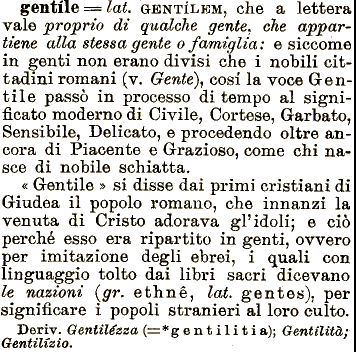 gentíle = lat. GENTÍLEM, che a lettera
vale proprio di qualche gente, che appar-
tiene alla stessa gente o famiglia: e siccome
in genti non erano divisi che i nobili cit-
tadini romani (v. Gente), cosí la voce Gen-
tile passò in processo di tempo al signi-
ficato moderno di Civile, Cortese, Garbato,
Sensibile, Delicato, e procedendo oltre an-
cora di Piacente e Grazioso, come chi na-
sce di nobile schiatta.
« Gentile » si disse dai primi cristiani di
Giudea il popolo romano, che innanzi la
venuta di Cristo adorava gl'idoli; e ciò
perché esso era ripartito in genti, ovvero
per imitazione degli ebrei, i quali con
linguaggio tolto dai libri sacri dicevano
le nazioni (gr. ethnê, lat. gentes), per
significare i popoli stranieri al loro culto.
Deriv. Gentilézza (=*gentilitia); Gentilità;
Gentilízio.